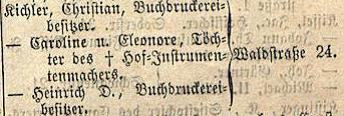 Kichler, Christian, Buchdruckerei-
besitzer.
— Caroline u. Eleonore, Töch-
ter des † Hof-Instrumen-
tenmachers.
— Heinrich D., Buchdruckerei-
besitzer.
Waldstraße 24.